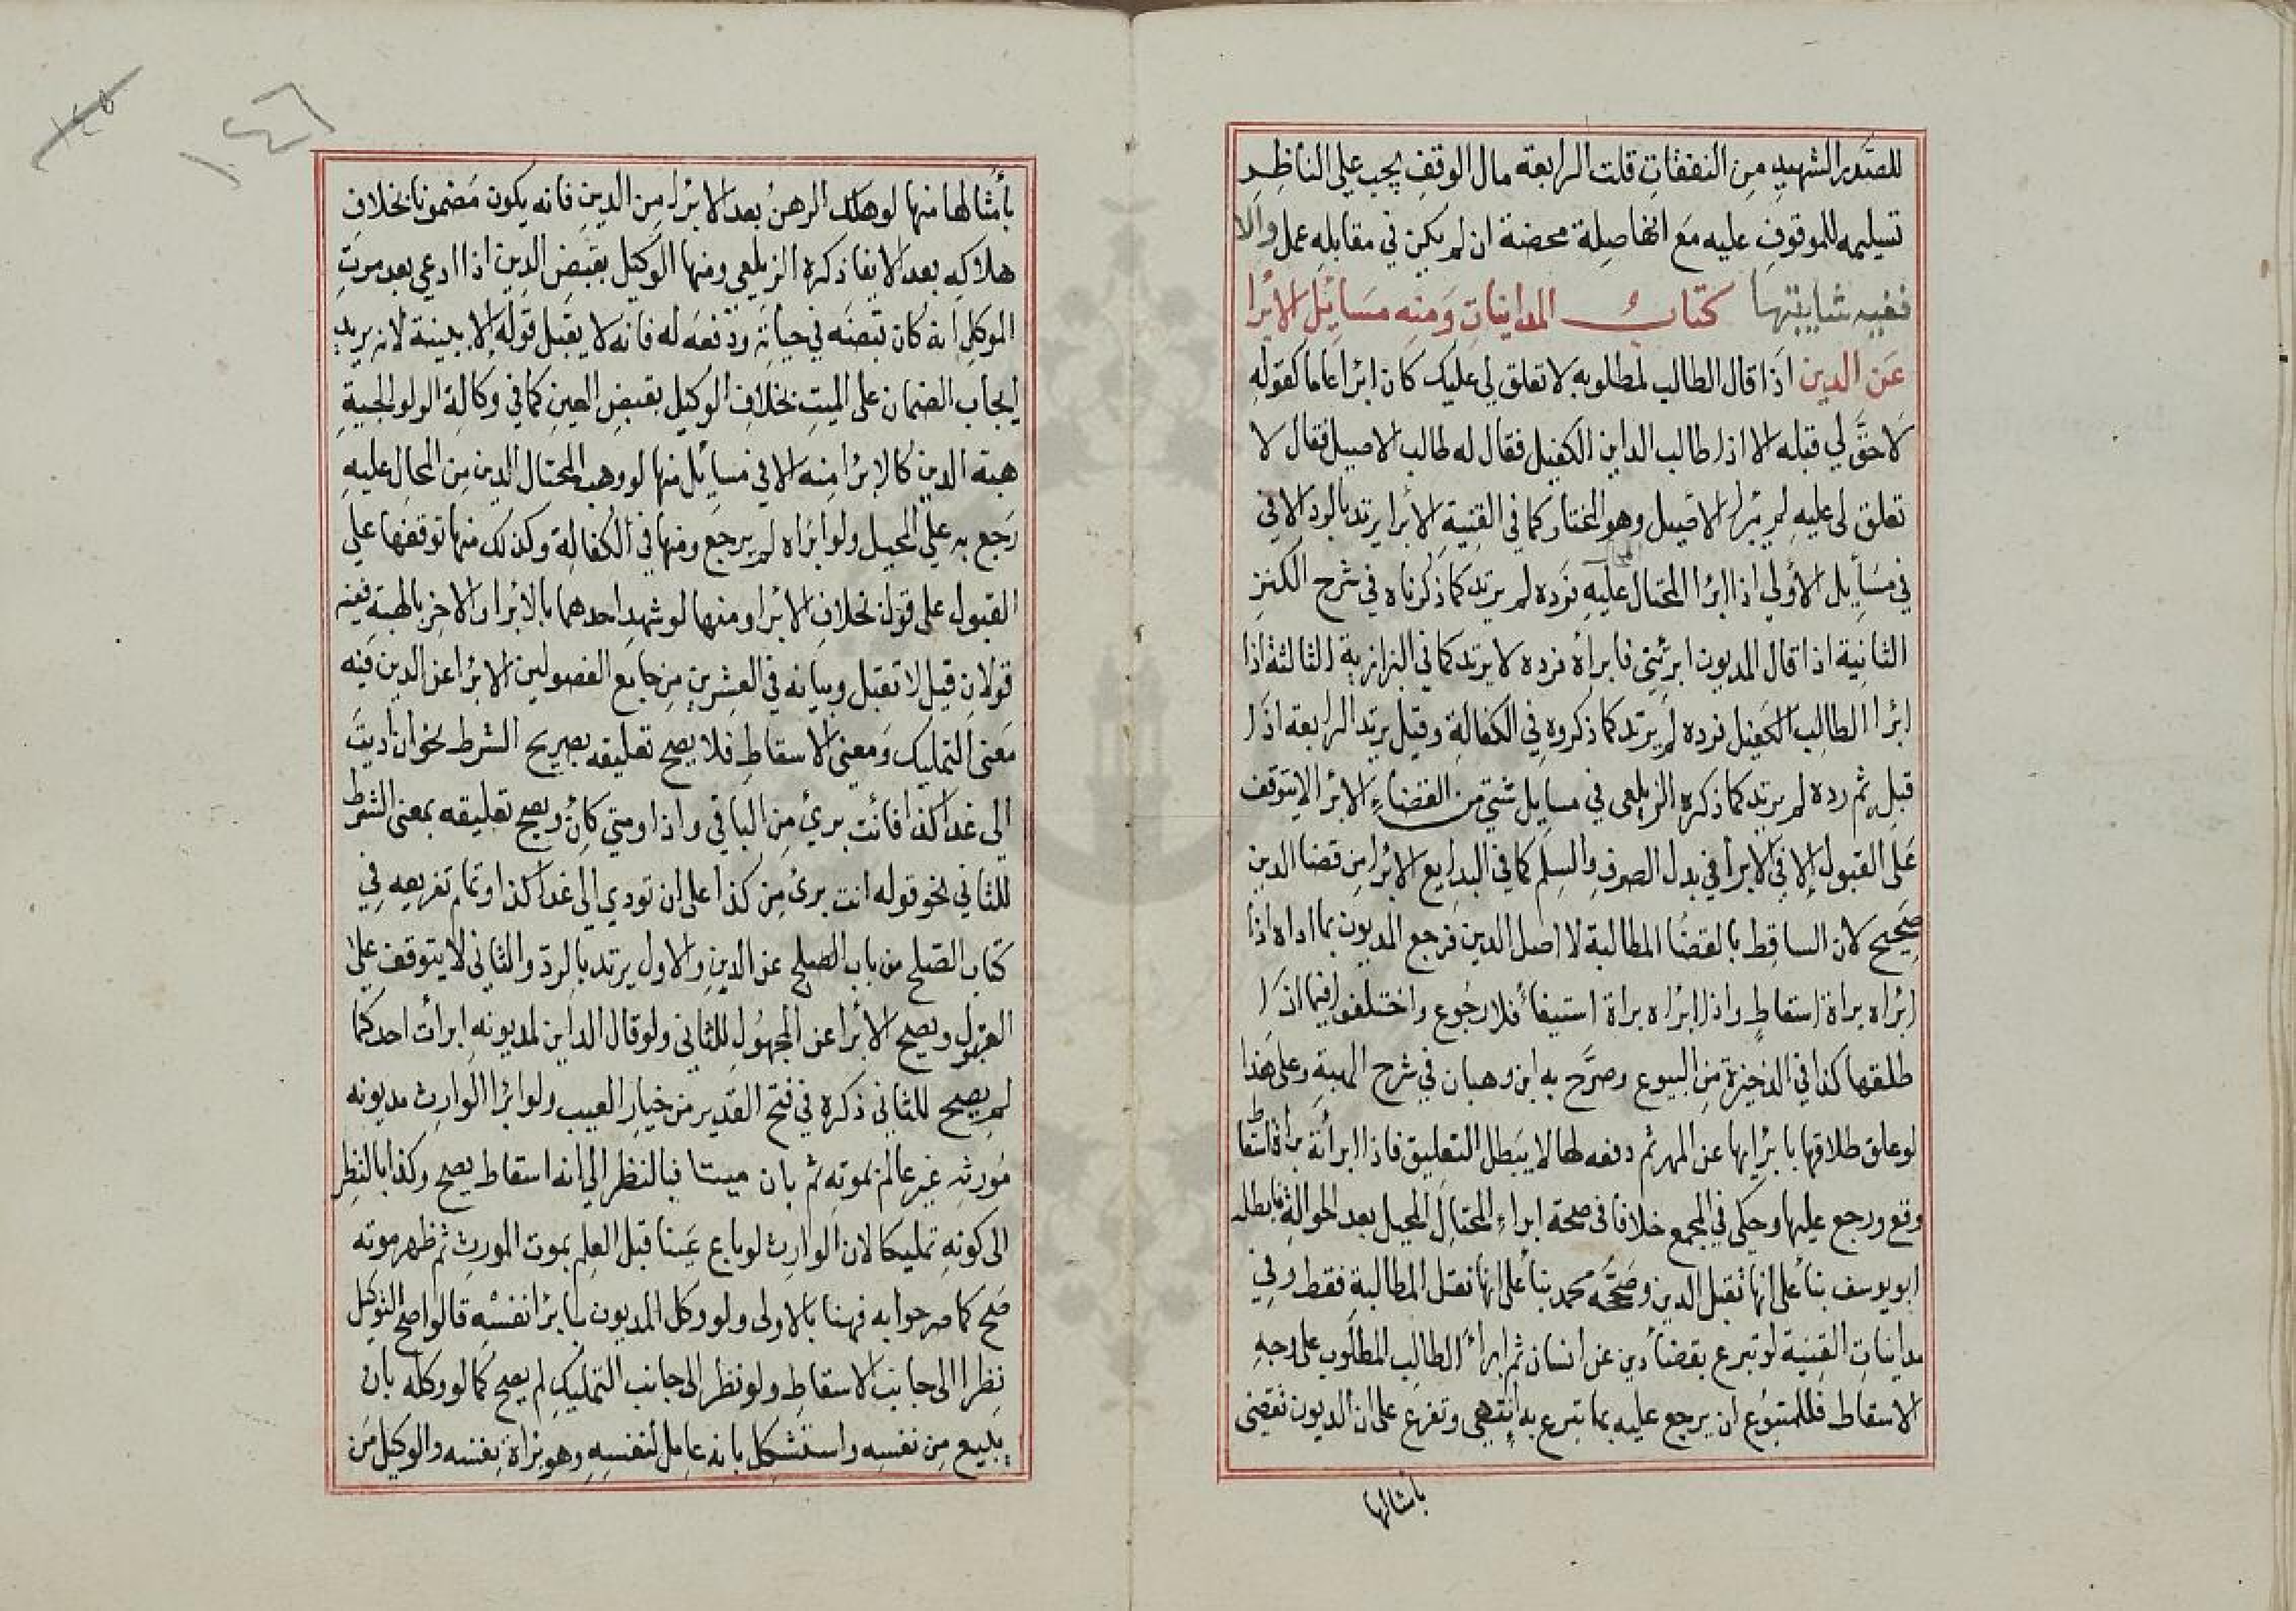 للصّدر الشهيد من النفقات قلت الرابعة مال الوقف يجب علي الناظر
تسليمه للموقوف عليه مع انها صلة محضة ان لم يكن في مقابله عمل والا
ففيه شائبتها كتاب المداينات ومنه مسايل الابرا
عن الدين اذا قال الطالب لمطلوبه لا تعلق لي عليك كان ابرا عاما كقوله
لا حق لي قبله الا اذا طالب الداين الكفيل فقال له طالب الاصيل فقال لا
تعلق لي عليه لم يبرا الاصيل وهو المختار كما في القنية الابرا يرتد بالرد الا في
في مسايل الاولي اذا ابرا المحتال عليه فرده لم يرتد كما ذكرناه في شرح الكنز
الثانية اذا قال المديون ابرئني فابراه فرده لا يرتد كما في البزازية الثالثة اذا
ابرا الطالب الكفيل فرده لم يرتد كما ذكروه في الكفالة وقيل يرتد الرابعة اذا
قبل ثم رده لم يرتد كما ذكره الزيلعي في مسايل شتي من القضاء الابرا لا يتوقف
علي القبول الا في الابرا في بدل الصرف والسلم كما في البدايع الابرا من قضا الدين
صحيح لان الساقط بالقضا المطالبة لا اصل الدين فرجع المديون بما اداه اذا
ابراه براة اسقاط واذا ابراه براة استيفاء فلا رجوع واختلفوا فيما اذا
طلقها كذا في الذخيرة من البيوع وصرح به ابن وهبان في شرح الهبة وعلي هذا
لو علق طلاقها بابرايها عن المهر ثم دفعه لها لا يبطل التعليق فاذا ابراته براة اسقاط
وقع ورجع عليها وحكي في المجمع خلافا في صحة ابراء المحتال المحيل بعد الحوالة فابطله
ابو يوسف بناء علي انها نقل الدين وصححه محمد بناء علي انها نقل المطالبة فقط وفي
مداينات القنية لو تبرع بقضاء دين عن انسان ثم ابراء الطالب المطلوب علي وجه
الاسقاط فللمتبوع ان يرجع عليه بما تبرع به انتهي وتفرع علي ان الديون تقضي
بامثالها
١٤٥
١٤٦
بامثالها منها لو هلك الرهن بعد الابرا من الدين فانه يكون مضمونا بخلاف
هلاكه بعد الايفا ذكره الزيلعي ومنها الوكيل بقبض الدين اذا ادعي بعد موت
الموكل انه كان قبضه في حياته ودفعه له فانه لا يقبل قوله الا ببينة لانه يريد
ايجاب الضمان علي الميت بخلاف الوكيل بقبض العين كما في وكالة الولوالجية
هبة الدين كالابرا منه الا في مسايل منها لو وهب المحتال الدين من المحال عليه
رجع به علي المحيل ولو ابراه لم يرجع ومنها في الكفالة وكذلك منها توقفها علي
القبول علي قول بخلاف الابرا ومنها لو شهد احدهما بالابرا والاخر بالهبة ففيه
قولان قيل لا تقبل وبيانه في العشرين من جامع الفصولين الابرا عن الدين فيه
معني التمليك ومعني الاسقاط فلا يصح تعليقه بصريح الشرط نحو ان اديت
الي غدا كذا فانت بريء من الباقي واذا ومتي كان ويصح تعليقه بمعني الشرط
للثاني نحو قوله انت بريء من كذا علي ان تودي الي غدا كذا وتمام تفريعه في
كتاب الصلح من باب الصلح عن الدين والاول يرتد بالرد والثاني لا يتوقف علي
القبول ويصح الابرا عن المجهول للثاني ولو قال الداين لمديونه ابرات احدكما
لم يصح للثاني ذكره في فتح القدير من خيار العيب ولو ابرا الوارث مديونه
مورثه غير عالم بموته ثم بان ميتا فبالنظر الي انه اسقاط يصح وكذا بالنظر
الي كونه تمليكا لان الوارث لو باع عينا قبل العلم بموت المورث ثم ظهر موته
صح كما صرحوا به فهنا بالاولي ولو وكل المديون بابرا نفسه قالوا صح التوكيل
نظرا الي جانب الاسقاط ولو نظر الي جانب التمليك لم يصح كما لو وكله بان
يبيع من نفسه واستشكل بانه عامل لنفسه وهو براة نفسه والوكيل من